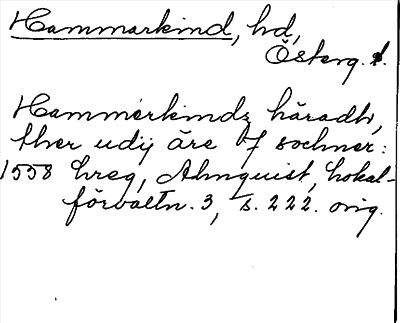 Hammarkind, hd,
Österg. l.
Hammerkindz häradh,
ther udij äre 7 sochner:
1558 hreg, Almquist, Lokal-
förvaltn. 3, s. 222. orig.